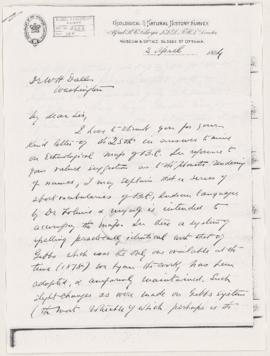 GEOLOGICAL & NATURAL HISTORY SURVEY
Alfred R.C. Selwyn LL.D. F.R.S. Director
MUSEUM & OFFICE SUSSEX ST OTTAWA.
2 April 1884
Dr W H Dall
Washington
My dear Sir,
I have to thank you for your
kind letter of the 25th in answer to mine
on Ethnological map of B.C. In reference to
your valued suggestion as to the phonetic rendering
of names, I may explain that a series of
short vocabularies of the B.C. Indian languages
by Dr Tolmie & myself is intended to
accompany the map. In this a system of
spelling practically identical with that of
Gibbs which was the only one available at the
time (1875) we began the work, has been
adopted, & uniformly maintained. Such
slight changes as were made on Gibbs system
(the most of which perhaps is the